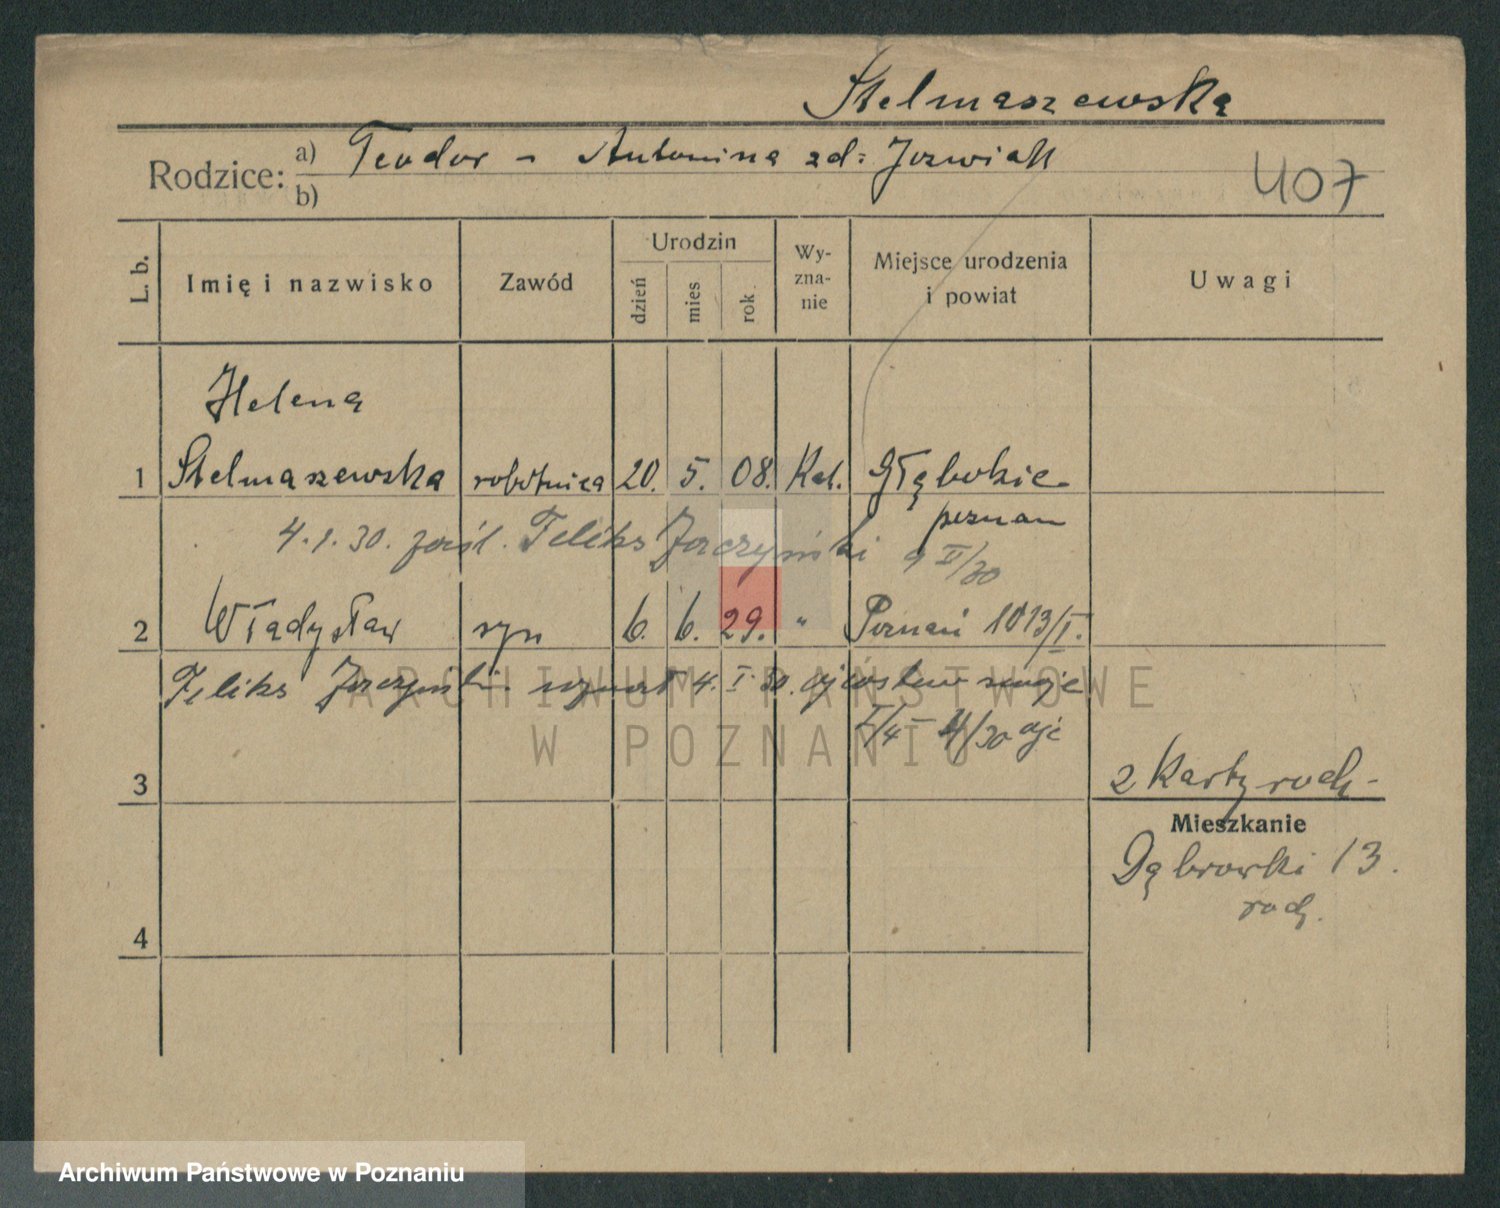 Stelmaszewska
Rodzice: a) Teodor - Antonina zd: Jozwiak
b)
407
L. b. Imię i nazwisko Zawód Urodzin dzień mies rok Wyznanie Miejsce urodzenia i powiat Uwagi
Helena
1 Stelmaszewska robotnica 20. 5. 08. Kat. Głębokie
poznan
4.1.30. zaśl. Feliks II/30
2 Władysław syn 6. 6. 29. " Poznań 1013/I.
Feliks uznał 4. I. 30. ojcostwo
3
2 Karty rodz.
Mieszkanie
Dąbrowki 13.
rodz.
4
ARCHIWUM PAŃSTWOWE
W POZNANIU
Archiwum Państwowe w Poznaniu